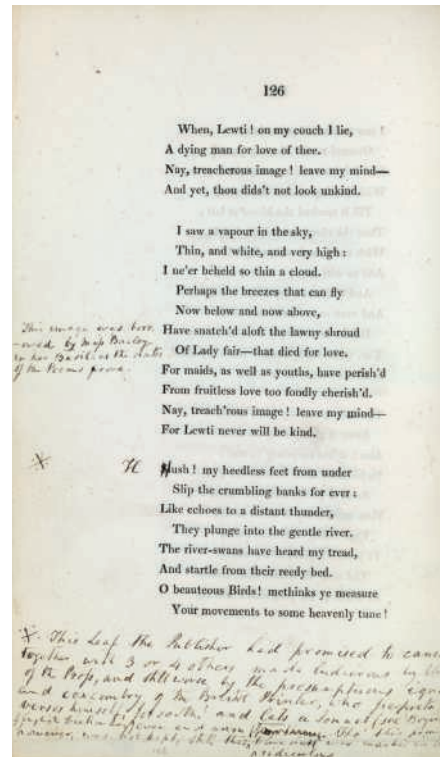 126
When, Lewti! on my couch I lie,
A dying man for love of thee.
Nay, treacherous image! leave my mind—
And yet, thou dids't not look unkind.
I saw a vapour in the sky,
Thin, and white, and very high:
I ne'er beheld so thin a cloud.
Perhaps the breezes that can fly
Now below and now above,
Have snatch'd aloft the lawny shroud
Of Lady fair—that died for love.
For maids, as well as youths, have perish'd
From fruitless love too fondly cherish'd.
Nay, treach'rous image! leave my mind—
For Lewti never will be kind.
This image was borr-
-owed by Miss Bailey
in her Basil as the dates
of the Poems prove.
* H Hush! my heedless feet from under
Slip the crumbling banks for ever:
Like echoes to a distant thunder,
They plunge into the gentle river.
The river-swans have heard my tread,
And startle from their reedy bed.
O beauteous Birds! methinks ye measure
Your movements to some heavenly tune!
*. This Leaf the Publisher had promised to cancel
together with 3 or 4 others made ludicrous by
of the Press, and still worse by the presumptuous
and coxcombry of the Bristol Printer, who
verses himself, forsooth! and
was not kept, still